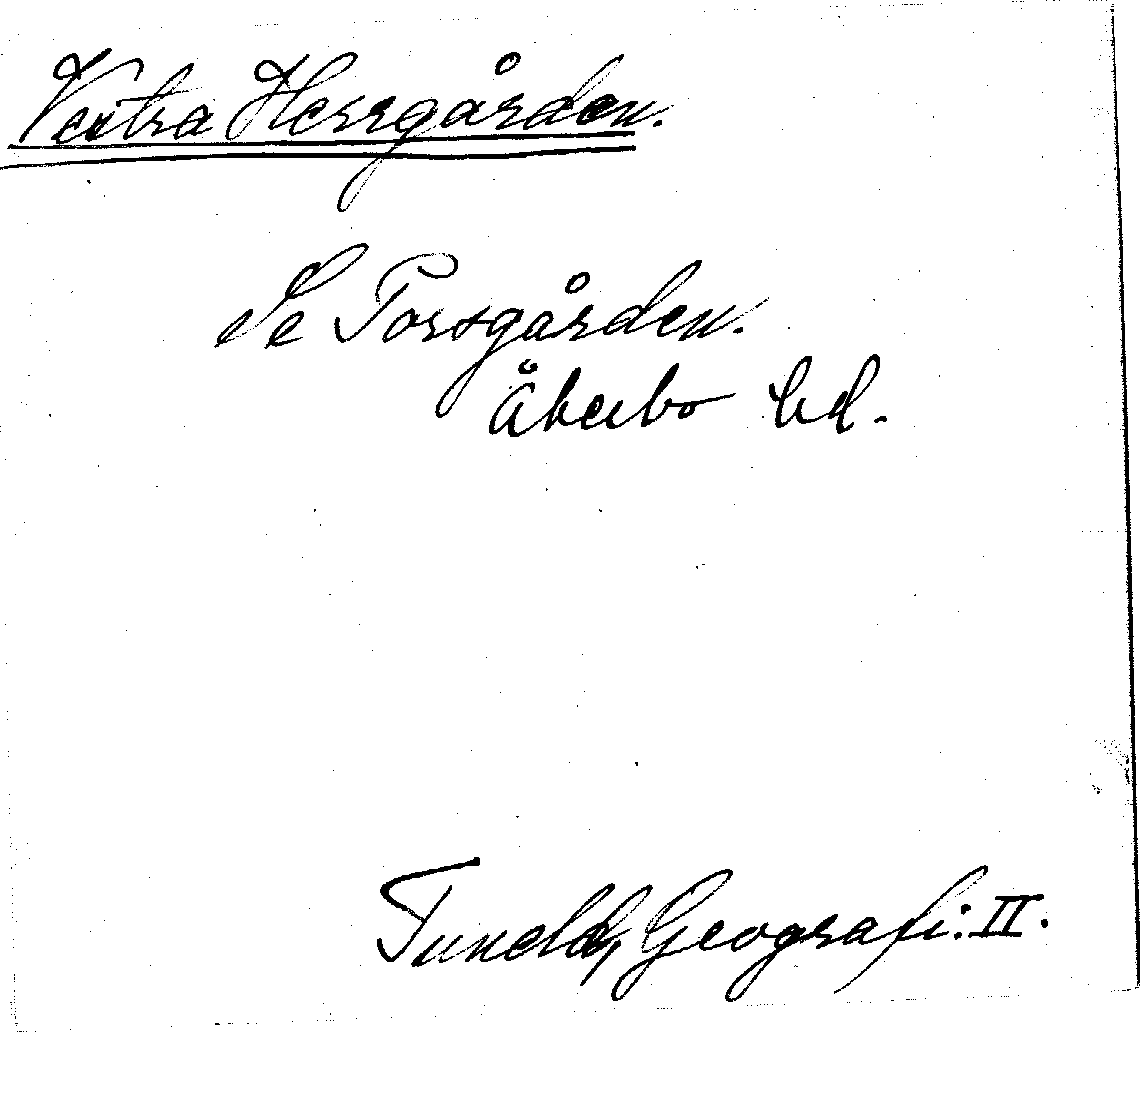 Vestra Herrgården.
Se Torsgården.
Åkerbo hd.
Tuneld, Geografi: II.